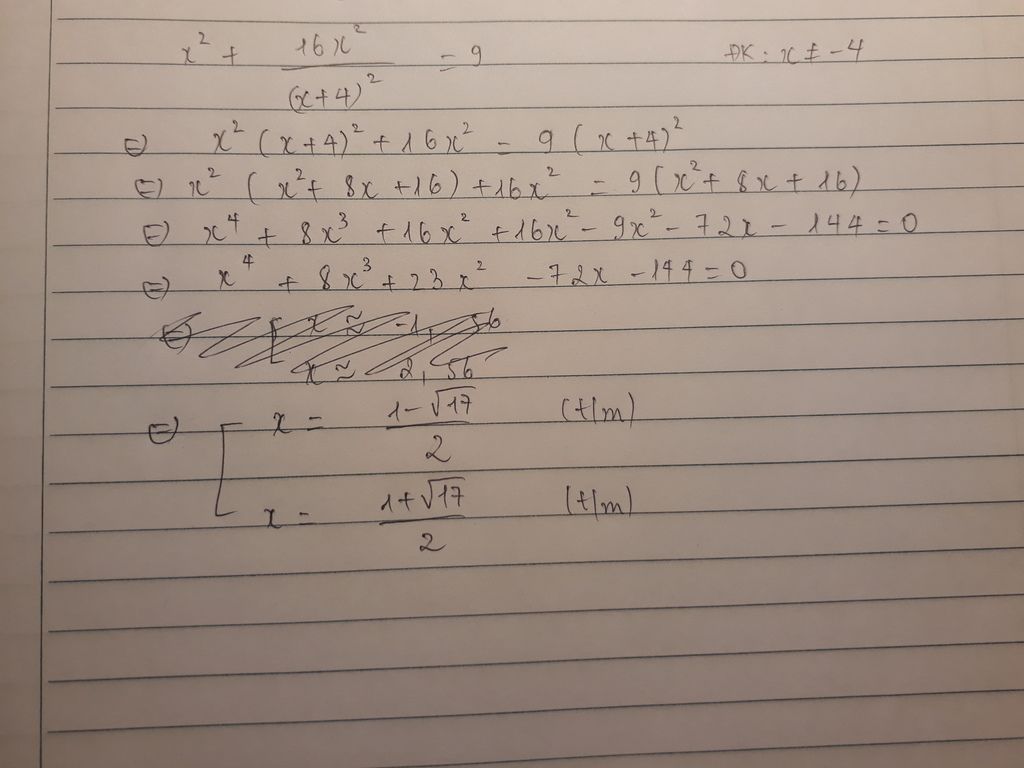 x² + 16x²/(x+4)² = 9 ĐK: x ≠ -4
⇔ x² (x+4)² + 16x² = 9 (x+4)²
⇔ x² (x² + 8x + 16) + 16x² = 9 (x² + 8x + 16)
⇔ x⁴ + 8x³ + 16x² + 16x² - 9x² - 72x - 144 = 0
⇔ x⁴ + 8x³ + 23x² - 72x - 144 = 0
⇔ [ x ≈ -1,56
x ≈ 2,56
⇔ [ x = (1-√17)/2 (t/m)
x = (1+√17)/2 (t/m)